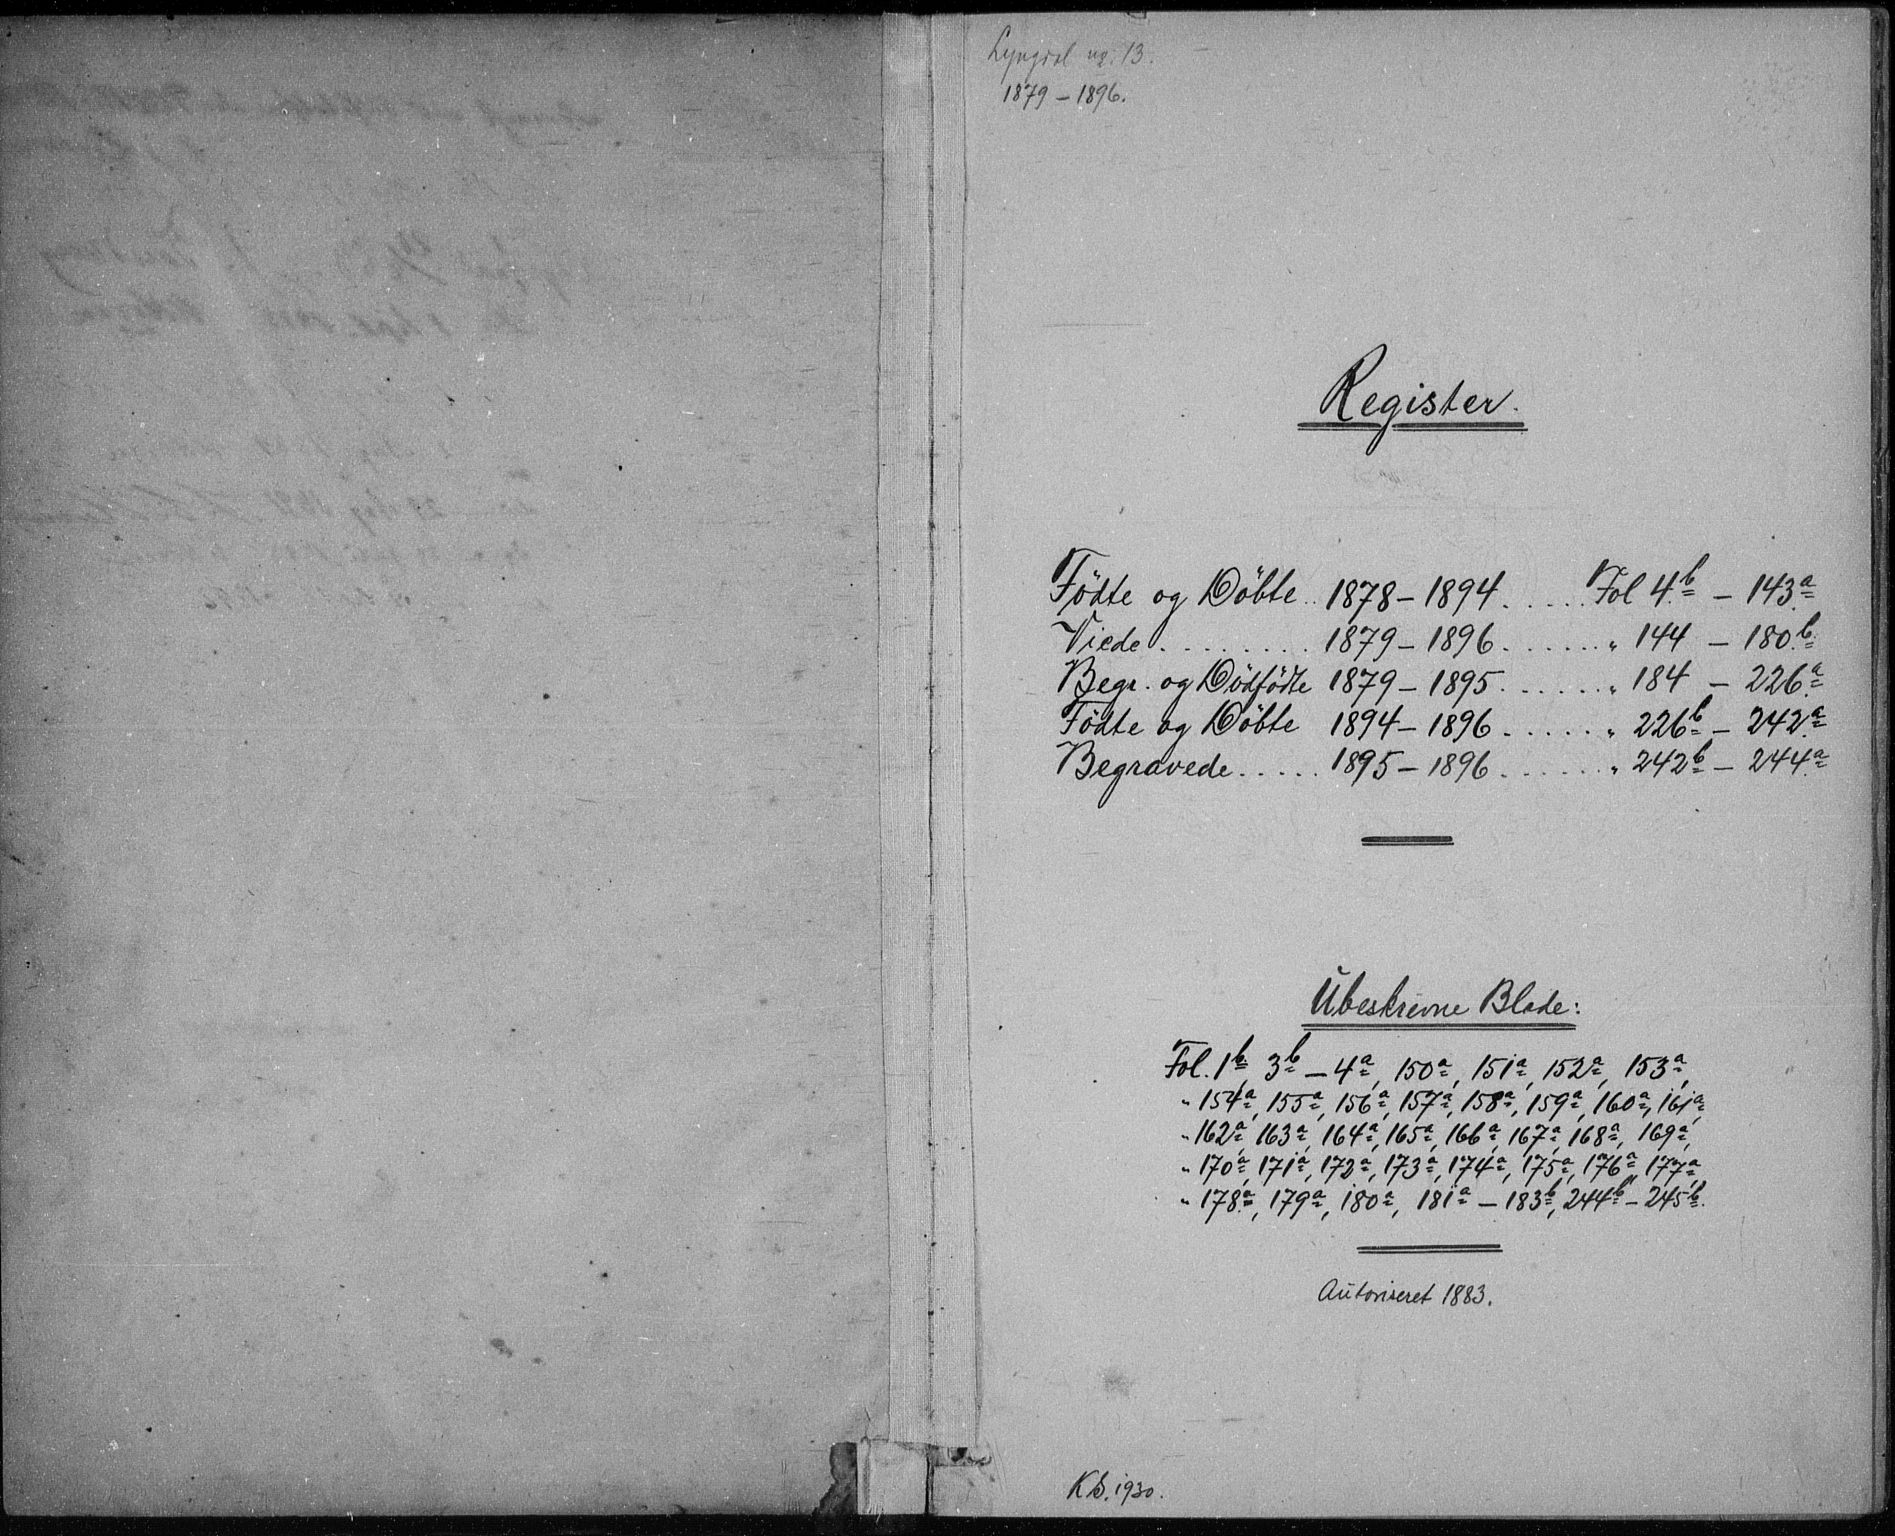 Lyngdal nr. 13.
1879 – 1896.
Register.
Födte og Döbte .. 1878 – 1894 ..... Fol 4b – 143a
Viede ........ 1879 – 1896 ...... " 144 – 180b
Begr. og Dödfödte 1879 – 1895 ...... " 184 – 226a
Födte og Döbte 1894 – 1896 ...... " 226b – 242a
Begravede ..... 1895 – 1896 ...... " 242b – 244a
Ubeskrevne Blade:
Fol. 1b, 3b – 4a, 150a, 151a, 152a, 153a,
" 154a, 155a, 156a, 157a, 158a, 159a, 160a, 161a,
" 162a, 163a, 164a, 165a, 166a, 167a, 168a, 169a,
" 170a, 171a, 172a, 173a, 174a, 175a, 176a, 177a,
" 178a, 179a, 180a, 181a – 183b, 244b – 245b.
Autoriseret 1883.
K.S. 1930.